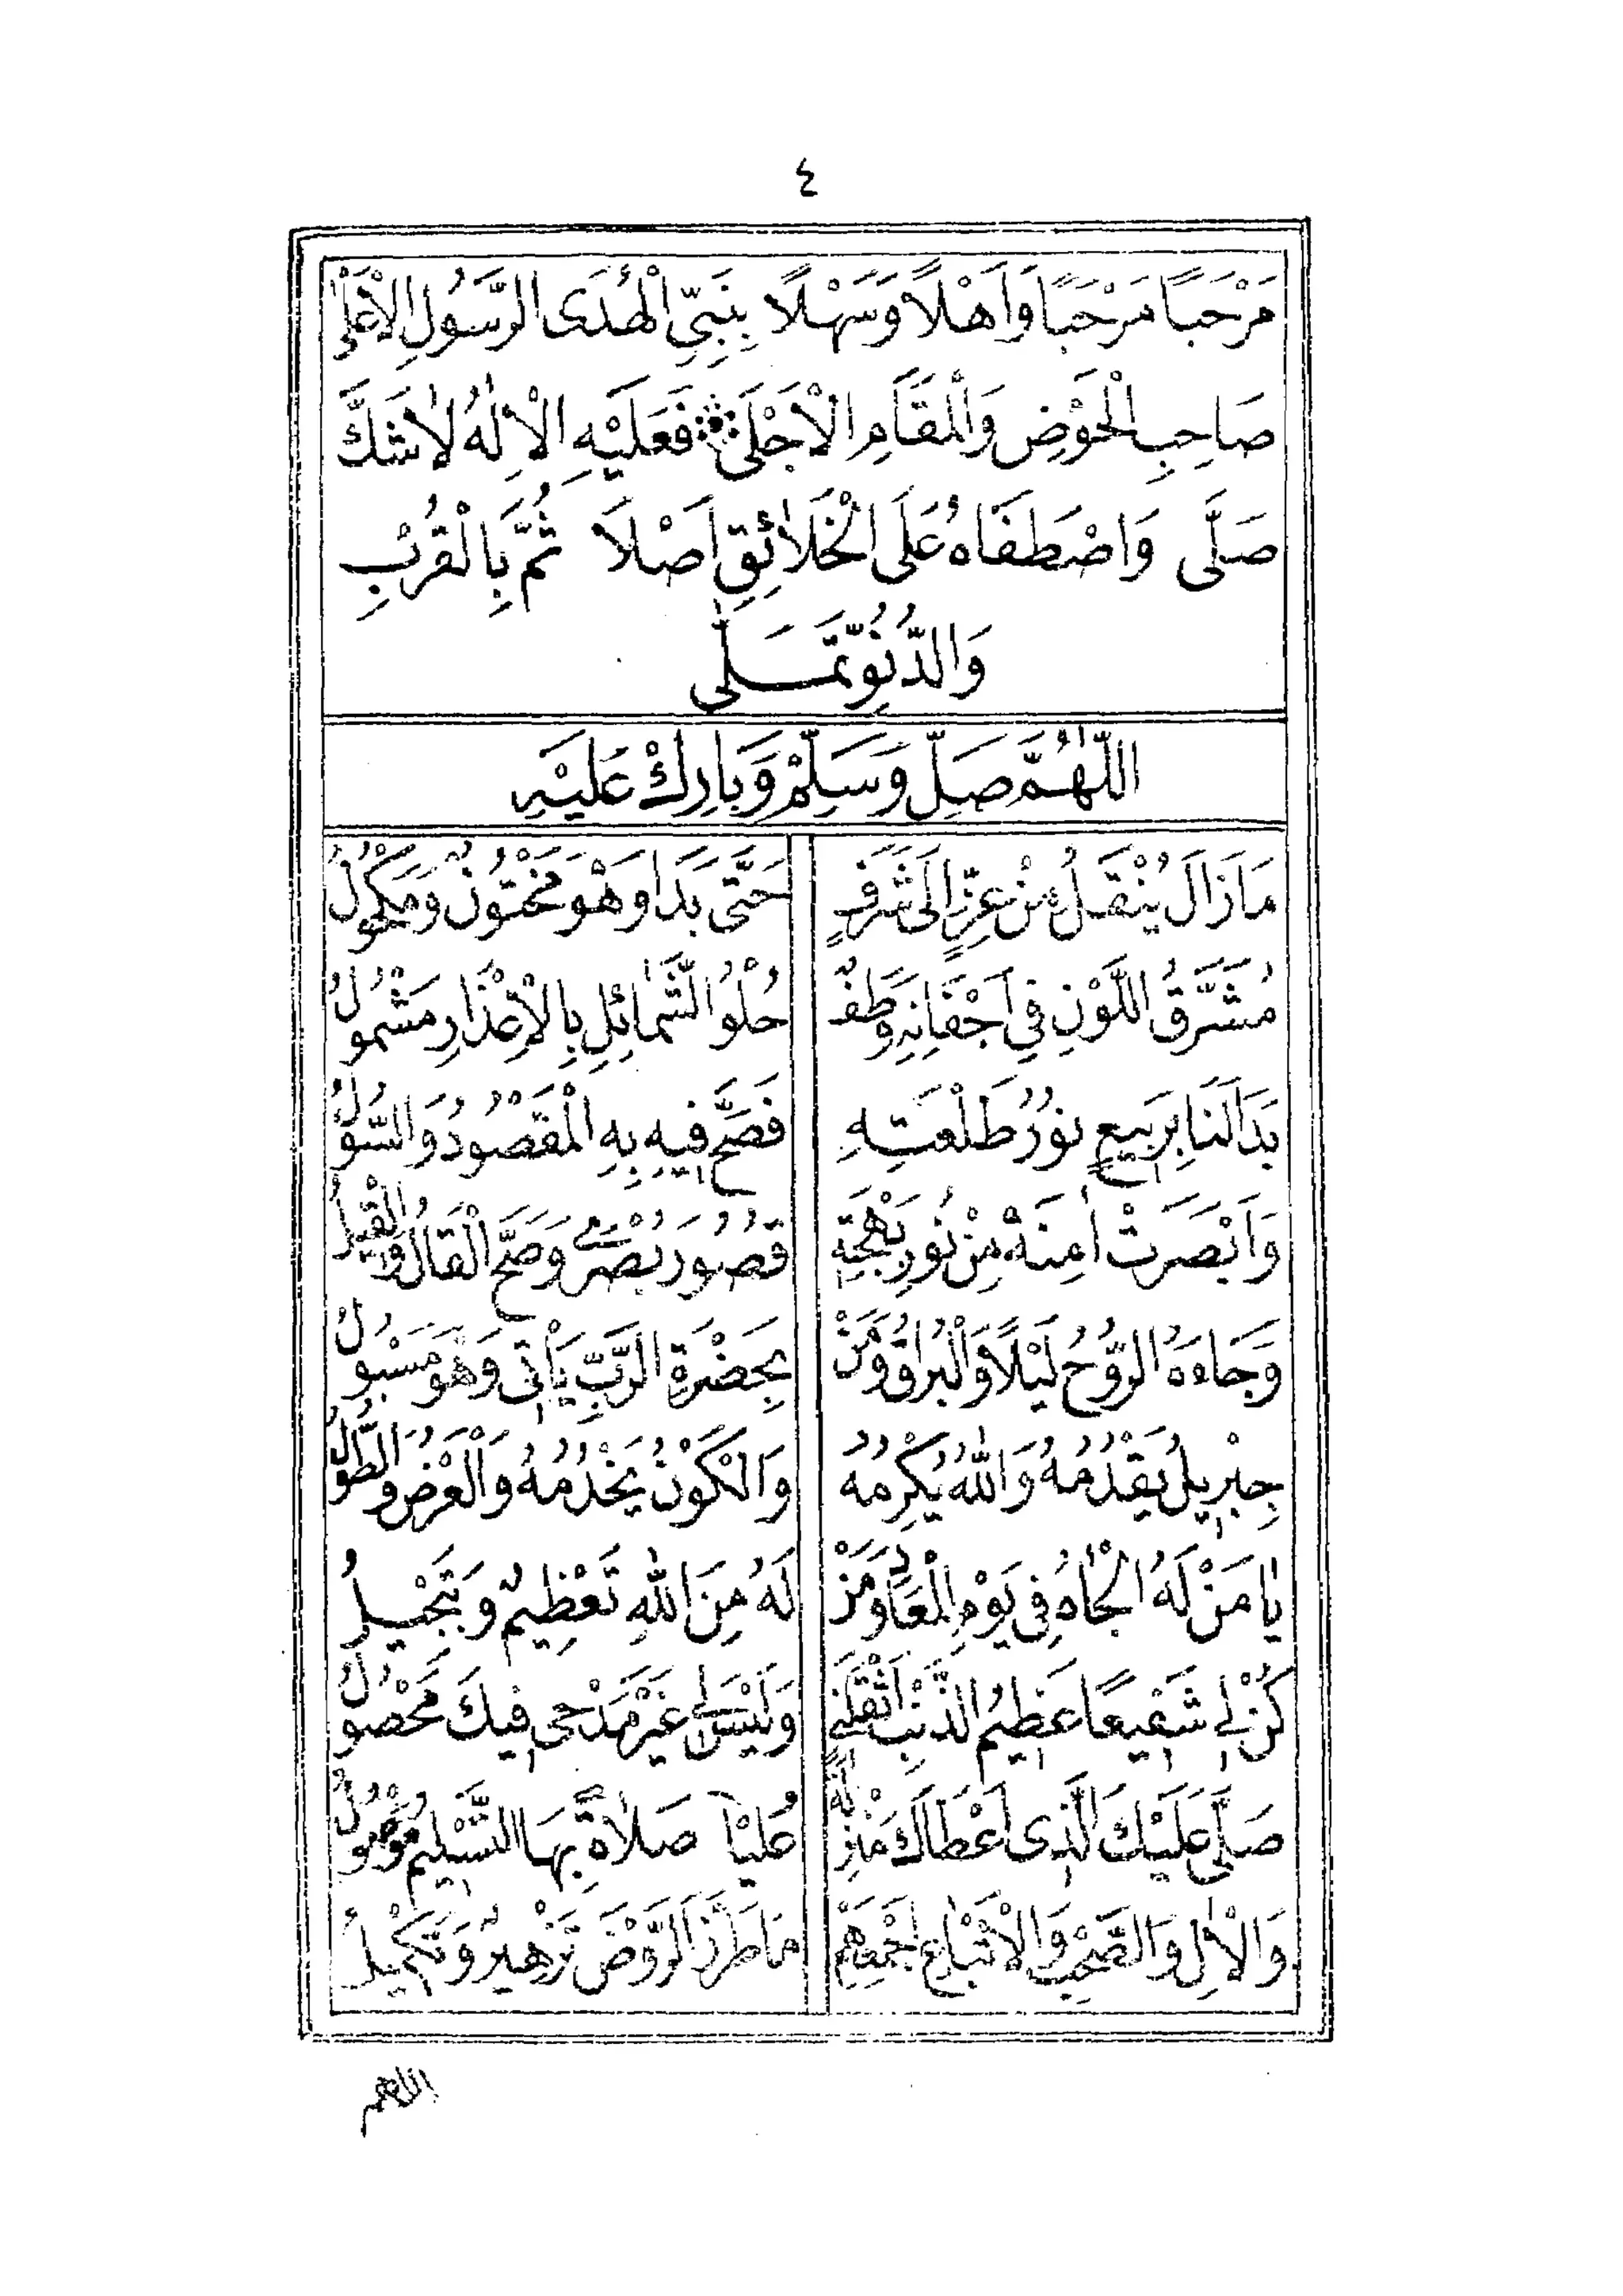 ٤
مَرْحَبًا مَرْحَبًا وَاَهْلًا وَسَهْلًا بِنَبِيِّ الْهُدَى الرَّسُولِ الْاَعْلٰى
صَاحِبِ الْحَوْضِ وَالْمَقَامِ الْاَجْلَى فَعَلَيْهِ الْاِلٰهُ لَاشَكَّ
صَلَّى وَاصْطَفَاهُ عَلَى الْخَلَائِقِ اَصْلَا ثُمَّ بِالْقُرْبِ
وَالدُّنُوِّ تَمَلّٰى
اَللّٰهُمَّ صَلِّ وَسَلِّمْ وَبَارِكْ عَلَيْهِ
مَازَالَ يُنْقَلُ مِنْ عِزٍّ اِلَى شَرَفٍ حَتَّى بَدَا وَهْوَ مَخْتُونٌ وَمَكْحُولُ
مُشَرَّقُ اللَّوْنِ فِي اَجْفَانِهِ وَطَفٌ حُلْوُ الشَّمَائِلِ بِالْاِعْذَارِ مَشْمُولُ
بَدَا لَنَا بِرَبِيعٍ نُورُ طَلْعَتِهِ فَصَحَّ فِيهِ بِهِ الْمَقْصُودُ وَالسُّولُ
وَاَبْصَرَتْ اٰمِنَهْ مِنْ نُورِ بَهْجَتِهِ قُصُورَ بُصْرٰى وَصَحَّ الْقَالُ وَالْقِيلُ
وَجَاءَهُ الرُّوحُ لَيْلًا وَالْبُرَاقُ وَمَنْ بِحَضْرَةِ الرَّبِّ يَأْتِى وَهْوَ مَسْبُولُ
جِبْرِيلُ يَقْدُمُهُ وَاللّٰهُ يُكْرِمُهُ وَالْكَوْنُ يَخْدُمُهُ وَالْعَرْضُ وَالطُّولُ
يَا مَنْ لَهُ الْجَاهُ فِى يَوْمِ الْمَعَادِ وَمَنْ لَهُ مِنَ اللّٰهِ تَعْظِيمٌ وَتَبْجِيلُ
كُنْ لِي شَفِيعًا عَظِيمُ الذَّنْبِ اَثْقَلَنِي وَلَيْسَ لِي غَيْرُ مَدْحِى فِيكَ مَحْصُولُ
صَلَّى عَلَيْكَ الَّذِى اَعْطَاكَ مَنْزِلَةً عُلْيَا صَلَاةً بِهَا التَّسْلِيمُ مَوْصُولُ
وَالْاٰلِ وَالصَّحْبِ وَالْاَتْبَاعِ اَجْمَعِهِمْ مَا طَرَّزَ الرَّوْضَ تَزْهِيرٌ وَتَكْمِيلُ
اللهم